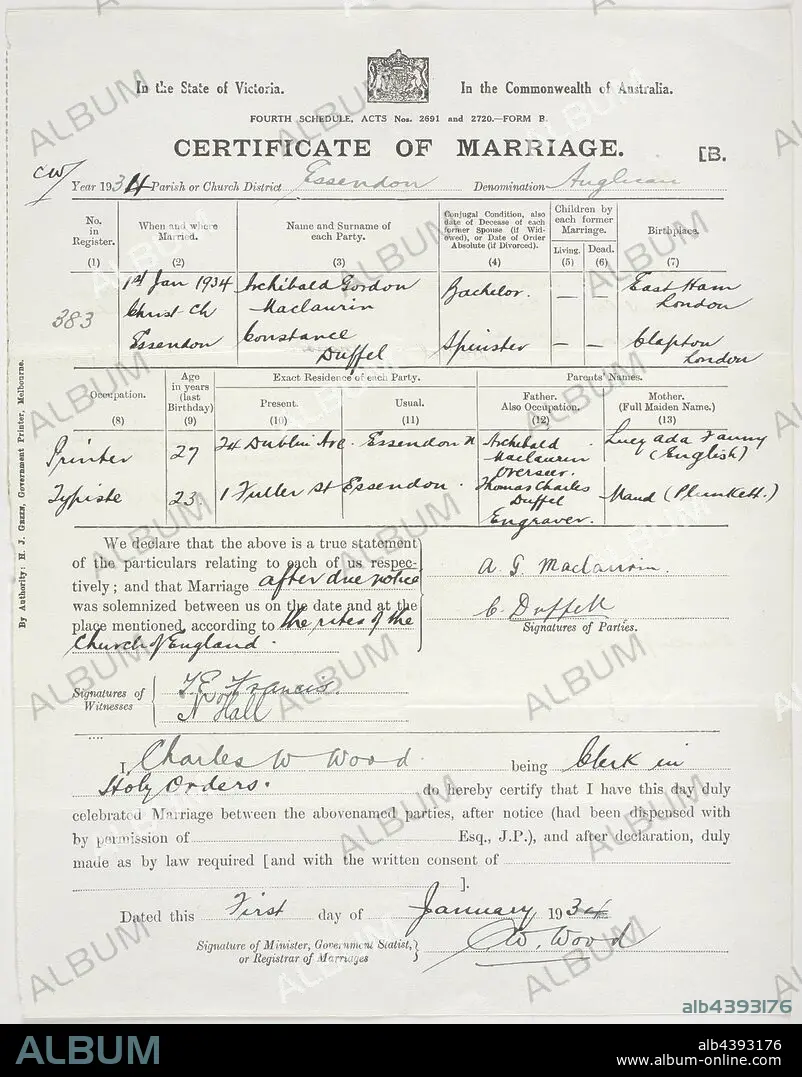 In the State of Victoria. In the Commonwealth of Australia.
FOURTH SCHEDULE, ACTS Nos. 2691 and 2720.—FORM B.
CERTIFICATE OF MARRIAGE. [B.
CW
Year 1934 Parish or Church District Essendon Denomination Anglican
No. in Register. (1)
When and where Married. (2)
Name and Surname of each Party. (3)
Conjugal Condition, also date of Decease of each former Spouse (if Widowed), or Date of Order Absolute (if Divorced). (4)
Children by each former Marriage.
Living. (5) Dead. (6)
Birthplace. (7)
383
1st Jan 1934 Archibald Gordon Bachelor. — — East Ham
Christ Ch Maclaurin London
Essendon Constance Spinster — — Clapton
Duffel London
Occupation. (8)
Age in years (last Birthday) (9)
Exact Residence of each Party.
Present. (10) Usual. (11)
Parents' Names.
Father. Also Occupation. (12)
Mother. (Full Maiden Name.) (13)
Printer 27 24 Dublin Ave. Essendon N Archibald Maclaurin Overseer. Lucy Ada Fanny (English)
Typiste 23 1 Fuller St Essendon. Thomas Charles Duffel Engraver. Maud (Plunkett.)
We declare that the above is a true statement
of the particulars relating to each of us respec-
tively; and that Marriage after due notice
was solemnized between us on the date and at the
place mentioned, according to the rites of the
Church of England.
A. G. Maclaurin.
C. Duffell
Signatures of Parties.
Signatures of Witnesses
T. E. Francis.
N Hall
I, Charles W Wood being Clerk in
Holy Orders. do hereby certify that I have this day duly
celebrated Marriage between the abovenamed parties, after notice (had been dispensed with
by permission of Esq., J.P.), and after declaration, duly
made as by law required [and with the written consent of
].
Dated this First day of January 1934
Signature of Minister, Government Statist, or Registrar of Marriages
CW. Wood
By Authority: H. J. GREEN, Government Printer, Melbourne.
ALBUM
alb4393176
ALBUM
alb4393176
www.album-online.com